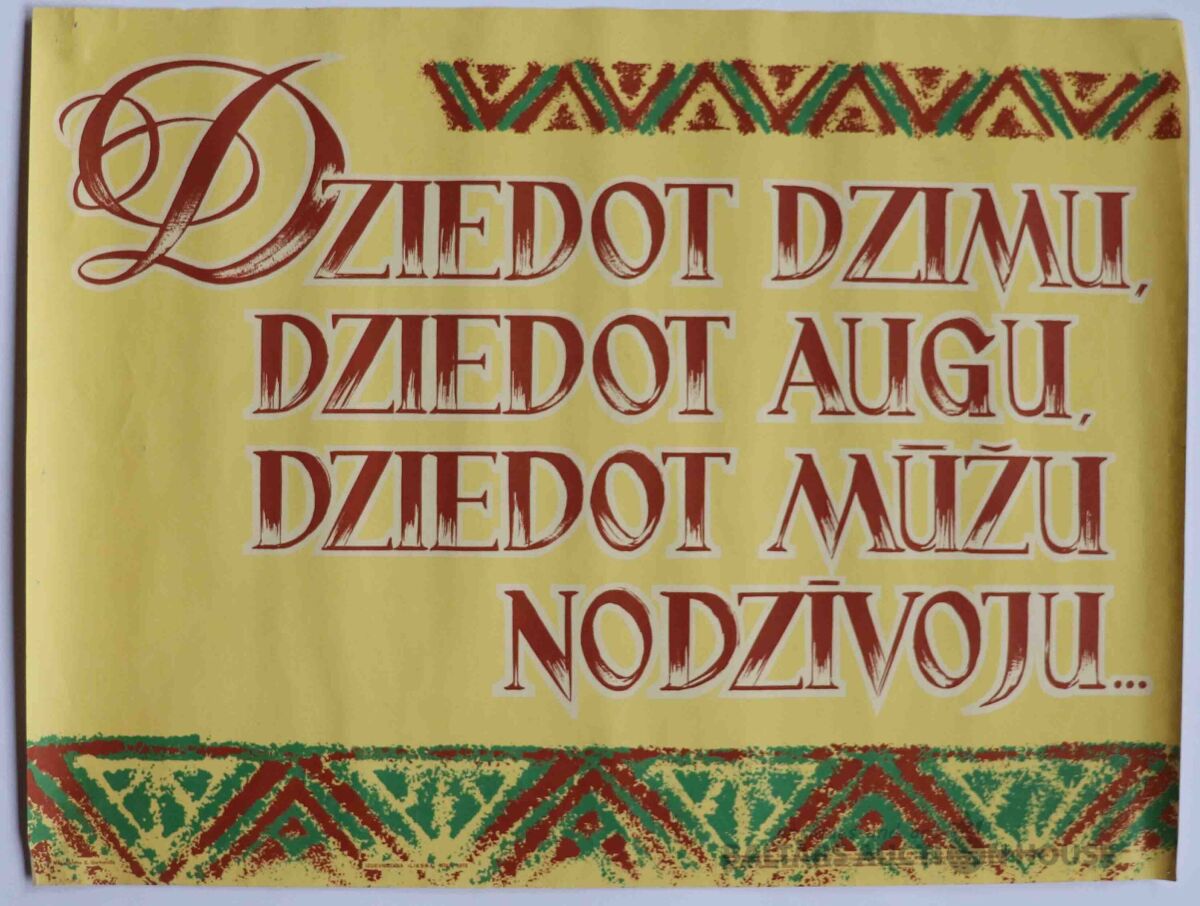 DZIEDOT DZIMU,
DZIEDOT AUGU,
DZIEDOT MŪŽU
NODZĪVOJU...
BALTARS AUCTION HOUSE